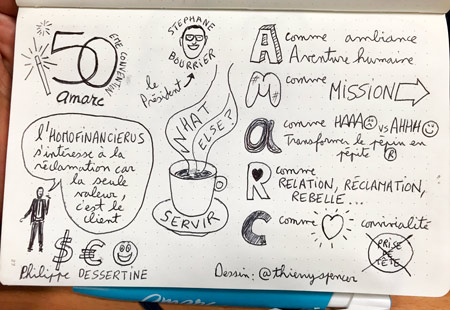 50
EME CONVENTION
amarc
STEPHANE
BOURRIER
le
Président
WHAT
ELSE?
SERVIR
l'HOMOFINANCIERUS
s'intéresse à la
réclamation car
la seule
valeur,
c'est le
client
$ € 
Philippe DESSERTINE
A comme ambiance
Aventure humaine
M comme MISSION
a comme HAAA vs AHHH
Transformer le pépin en
pépite ®
R comme
RELATION, RÉCLAMATION,
REBELLE...
C comme convivialité
PRISE
DE
TÊTE
Dessin: @thierryspencer
amarc